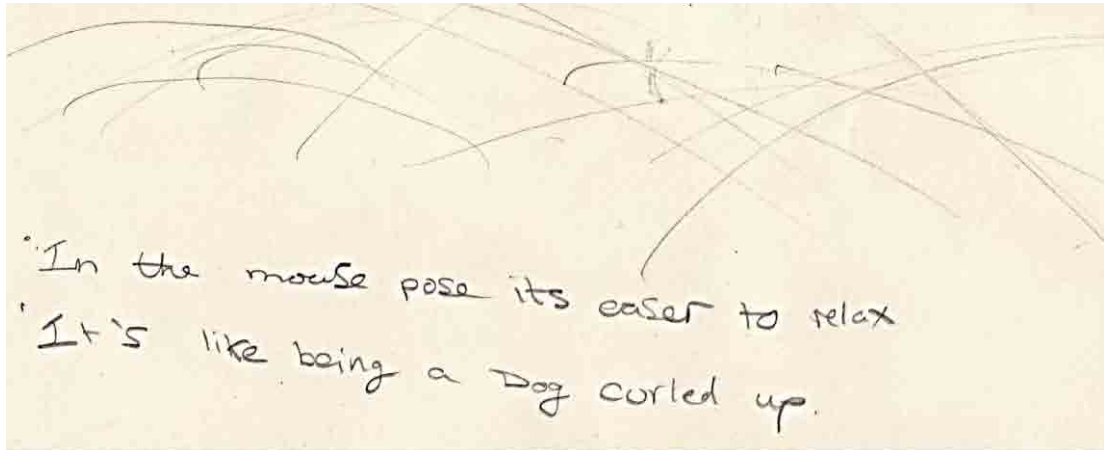 "In the mouse pose its easer to relax
'It's like being a Dog curled up.